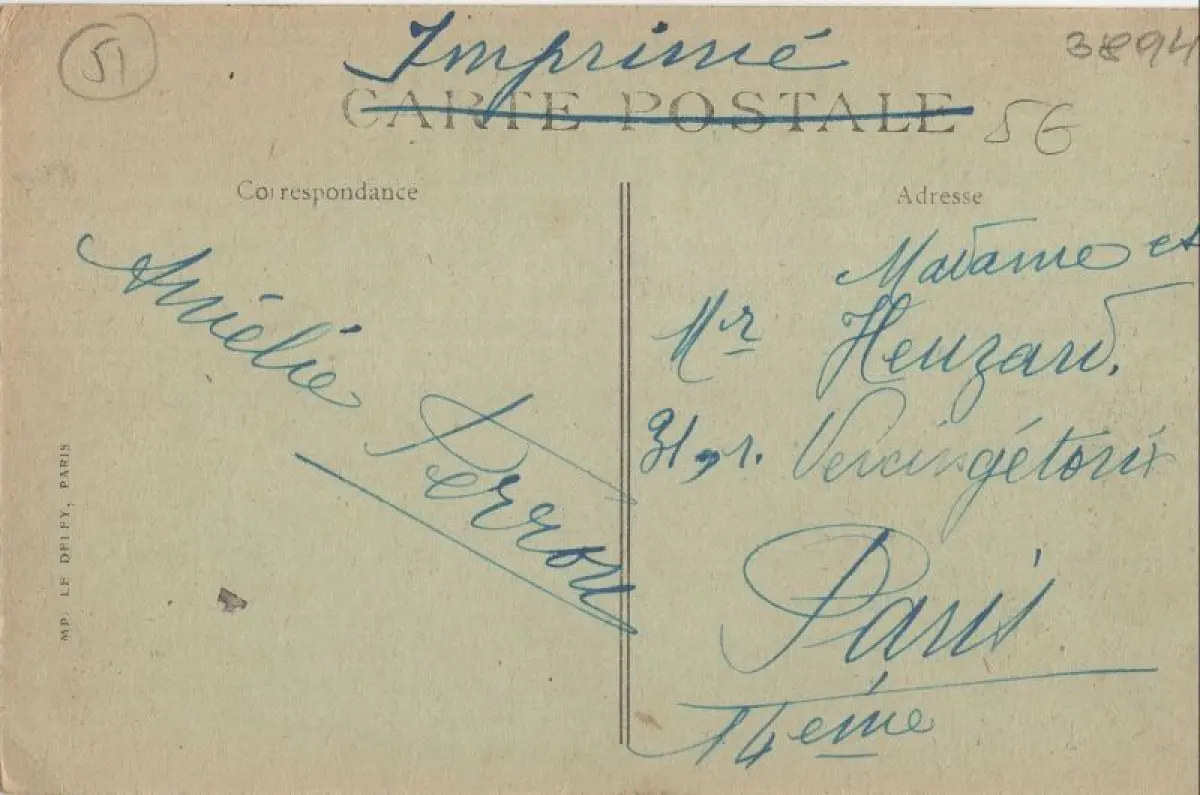 51
Imprimé
3894
CARTE POSTALE
5G
Correspondance
Adresse
Amélie Perron
Madame et
Mr Heuzard.
31, r. Vercingétorix
Paris
14ème
IMP. LE DELEY, PARIS